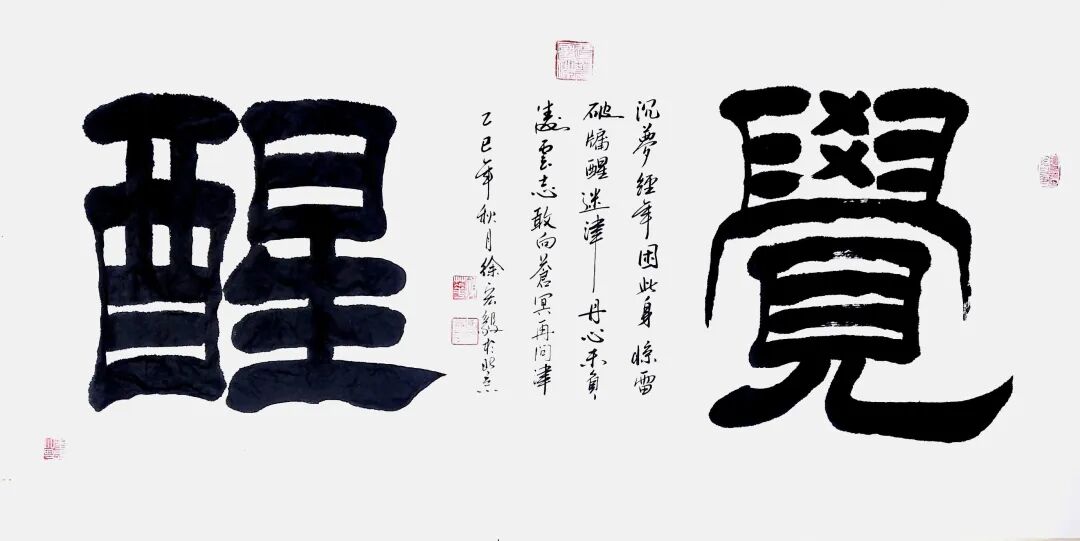 覺
沉夢經年困此身惊雷
破牖醒迷津丹心未負
凌雲志敢向蒼冥再問津
乙巳年秋月徐宏毅於北京
醒